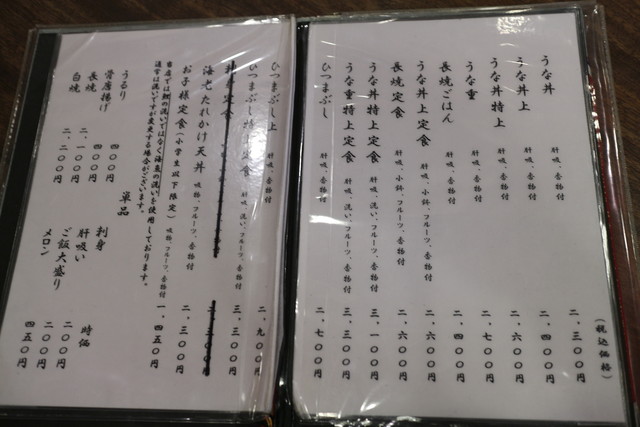 (税込価格)
うな丼 肝吸、香物付 二、三〇〇円
うな丼上 肝吸、香物付 二、四〇〇円
うな丼特上 肝吸、香物付 二、六〇〇円
うな重 肝吸、香物付 二、七〇〇円
長焼ごはん 肝吸、香物付 二、四〇〇円
うな丼上定食 肝吸、小鉢、フルーツ、香物付 二、六〇〇円
長焼定食 肝吸、小鉢、フルーツ、香物付 二、六〇〇円
うな丼特上定食 肝吸、洗い、フルーツ、香物付 三、一〇〇円
うな重特上定食 肝吸、洗い、フルーツ、香物付 三、三〇〇円
ひつまぶし 肝吸、香物付 二、七〇〇円
ひつまぶし上 肝吸、香物付 二、九〇〇円
ひつまぶし特上定食 肝吸、洗い、フルーツ、香物付 三、三〇〇円
定食
海老たれかけ天丼 吸物、フルーツ、香物付 二、三〇〇円
お子様定食(小学生以下限定) 吸物、フルーツ、香物付 一、四五〇円
当店では鯉の洗いではなく海魚の洗いを使用しております。
通常は洗いですが変更する場合がございます。
単品
うるり 四〇〇円
骨唐揚げ 四〇〇円
長焼 二、一〇〇円
白焼 二、二〇〇円
刺身 時価
肝吸い 二〇〇円
ご飯大盛り 二〇〇円
メロン 四五〇円